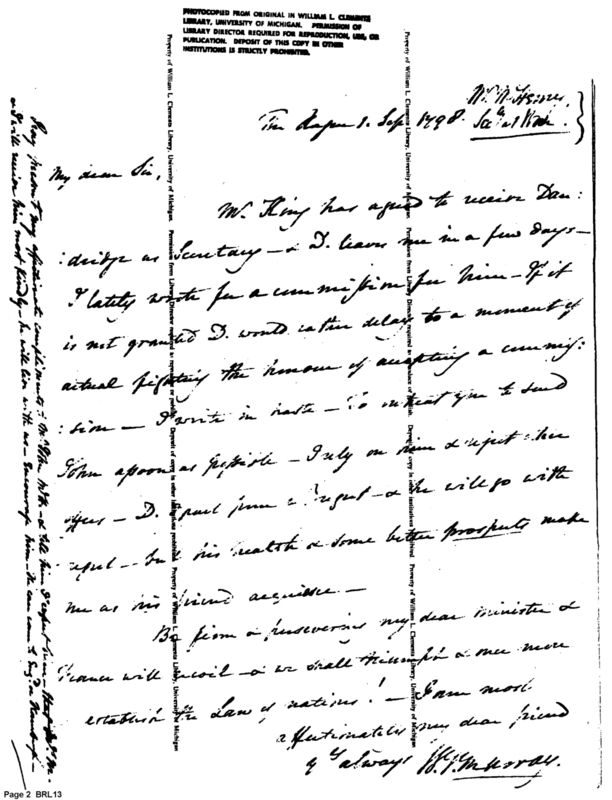 PHOTOCOPIED FROM ORIGINAL IN WILLIAM L. CLEMENTS
LIBRARY, UNIVERSITY OF MICHIGAN. PERMISSION OF
LIBRARY DIRECTOR REQUIRED FOR REPRODUCTION, USE, OR
PUBLICATION. DEPOSIT OF THIS COPY IN OTHER
INSTITUTIONS IS STRICTLY PROHIBITED.
Property of William L. Clements Library, University of Michigan. Permission from Library Director required to reproduce or publish. Deposit of copy in other institutions prohibited. Property of William L. Clements Library, University of Michigan
The Hague 1. Sep. 1798.
My dear Sir,
Mr. King has agreed to receive Dan:
:dridge as Secretary - & D. leaves me in a few days -
I lately wrote for a commission for him - If it
is not granted D. would rather delay to a moment of
actual fighting the honour of accepting a commis:
:sion - I write in haste - To intreat you to send
John as soon as possible - I rely on him & reject other
offers - D. I part from & regret - & he will go with
regret - but his health & some better prospects make
me as his friend acquiesce -
Be firm & persevering my dear minister &
France will recoil - & we shall triumph & once more
establish the Law of nations! - I am most
affectionately my dear friend
yrs always W. V. Murray.
Pray present my affectionate compliments to
him
most kindly - he will live with us - encourage him -
Page 2 BRL13